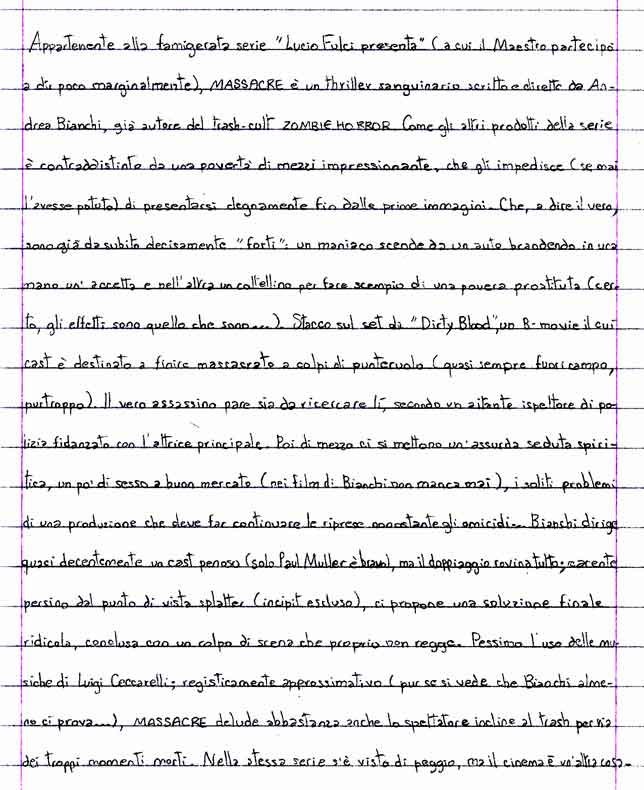 Appartenente alla famigerata serie "Lucio Fulci presenta" (a cui il Maestro partecipò
a dir poco marginalmente), MASSACRE è un thriller sanguinario scritto e diretto da An-
drea Bianchi, già autore del trash-cult ZOMBIE HORROR. Come gli altri prodotti della serie
è contraddistinto da una povertà di mezzi impressionante, che gli impedisce (se mai
l'avesse potuto) di presentarsi degnamente fin dalle prime immagini. Che, a dire il vero,
sono già da subito decisamente "forti": un maniaco scende da un auto brandendo in una
mano un'accetta e nell'altra un coltellino per fare scempio di una povera prostituta (cer-
to, gli effetti sono quello che sono...). Stacco sul set di "Dirty Blood", un B-movie il cui
cast è destinato a finire massacrato a colpi di punteruolo (quasi sempre fuori campo,
purtroppo). Il vero assassino pare sia da ricercare lì, secondo un aitante ispettore di po-
lizia fidanzato con l'attrice principale. Poi di mezzo ci si mettono un'assurda seduta spiri-
tica, un po' di sesso a buon mercato (nei film di Bianchi non manca mai), i soliti problemi
di una produzione che deve far continuare le riprese nonostante gli omicidi... Bianchi dirige
quasi decentemente un cast penoso (solo Paul Muller è bravo), ma il doppiaggio rovina tutto; carente
persino dal punto di vista splatter (incipit escluso), ci propone una soluzione finale
ridicola, conclusa con un colpo di scena che proprio non regge. Pessimo l'uso delle mu-
siche di Luigi Ceccarelli; registicamente approssimativo (pur se si vede che Bianchi alme-
no ci prova...), MASSACRE delude abbastanza anche lo spettatore incline al trash per via
dei troppi momenti morti. Nella stessa serie s'è visto di peggio, ma il cinema è un'altra cosa.